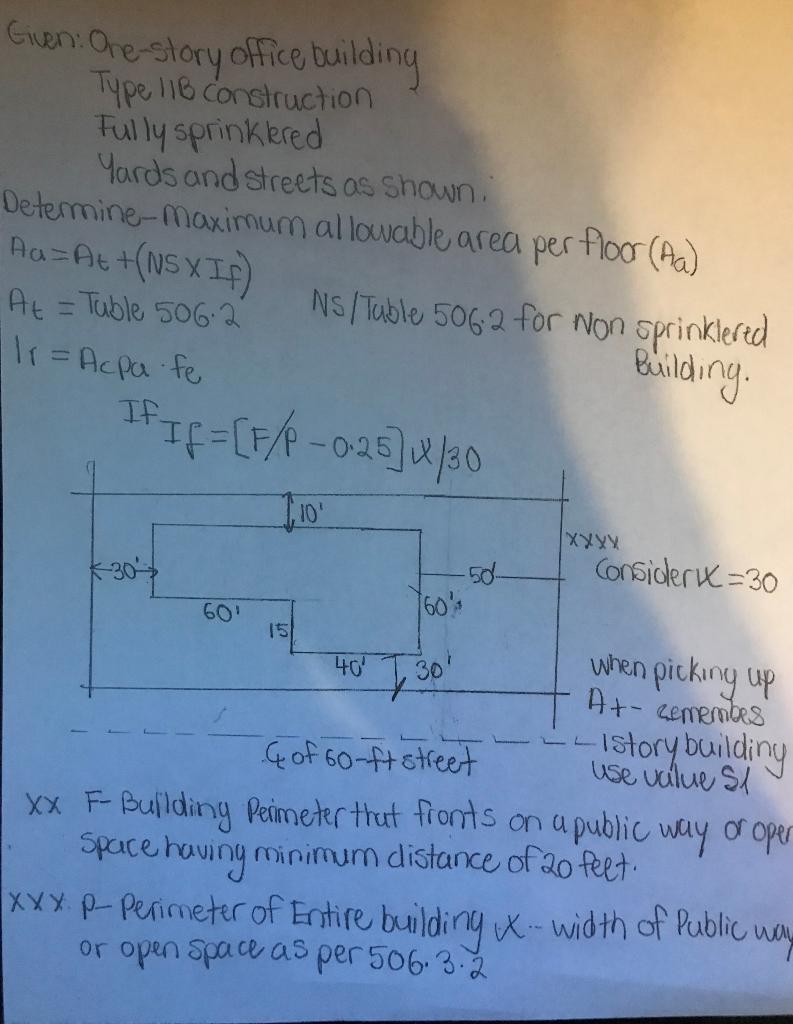 Given: One-story office building
Type IIB construction
Fully sprinklered
Yards and streets as shown.
Determine-maximum allowable area per floor (Aa)
Aa = At + (NS x If)
At = Table 506.2 NS/Table 506.2 for Non sprinklered
Building.
If = Acpa · fe
If If = [F/P - 0.25] W/30
10'
xxxx
30' 50' Consider W = 30
60' 60'
15
40' 30' when picking up
At - remembes
1 story building
℄ of 60-ft street use value S1
xx F- Building Perimeter that fronts on a public way or open
space having minimum distance of 20 feet.
xxx P- Perimeter of Entire building W -- width of Public way
or open space as per 506.3.2